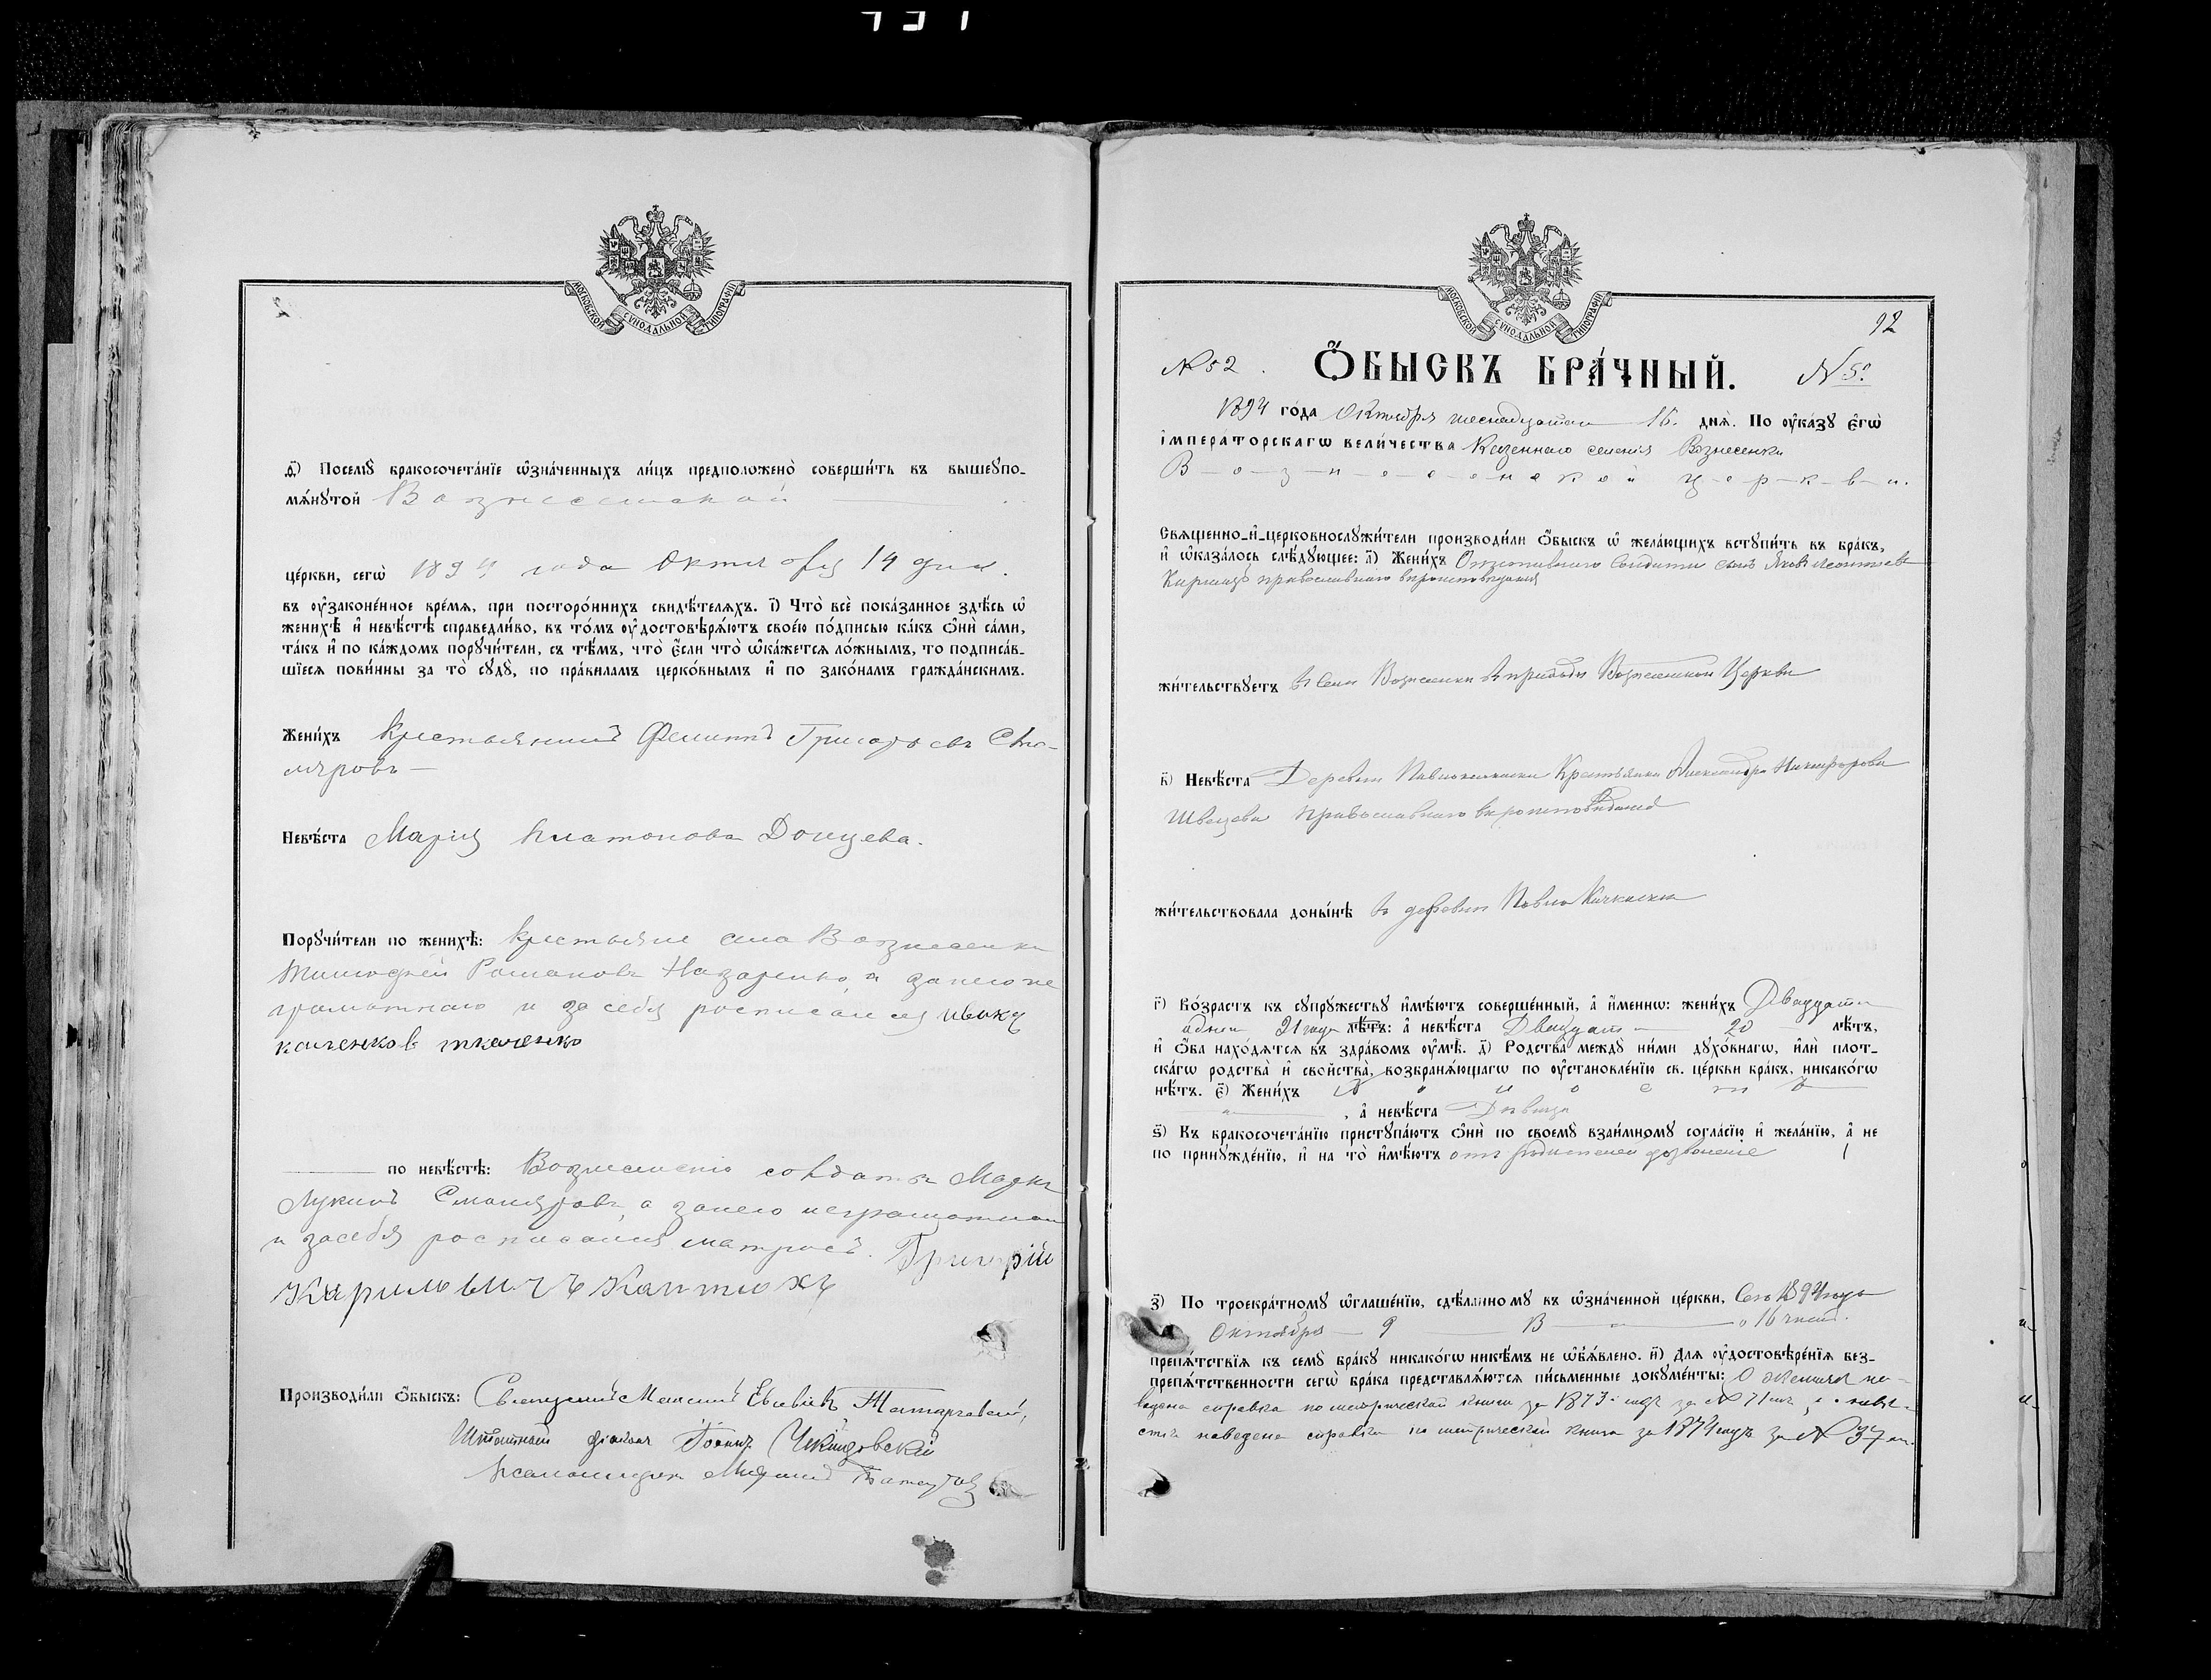 МОСКОВСКОЙ СУНОДАЛЬНОЙ ТИПОГРАФІИ
ѳ҃) Посемꙋ̀ бракосочета́нїе ѡ҆зна́ченныхъ ли́цъ предположено̀ соверши́ть въ вышеꙋпо-
мѧ́нꙋтой Вознесенской
це́ркви, сегѡ̀ 1894 года Октября 14 дня.
въ ᲂу҆зако́ненное вре́мѧ, при посторо́ннихъ свидѣ́телѧхъ. і҃) Что̀ всѐ пока́занное здѣ́сь ѡ҆
женихѣ̀ и҆ невѣ́стѣ справедли́во, въ то́мъ ᲂу҆достовѣрѧ́ютъ свое́ю по́дписью ка́къ ѻ҆нѝ са́ми,
та́къ и҆ по ка́ждомъ порꙋчи́тели, съ тѣ́мъ, что̀ є҆́сли что̀ ѡ҆ка́жетсѧ ло́жнымъ, то подписа́в-
шїесѧ пови́нны за то̀ сꙋдꙋ̀, по пра́виламъ церко́внымъ и҆ по зако́намъ гражда́нскимъ.
Жени́хъ Крестьянинъ Филиппъ Григорьевъ Сто-
ляровъ
Невѣ́ста Марія Платонова Донцева.
Порꙋчи́тели по женихѣ̀: Крестьяне села Вознесенки
Тимофей Романовъ Назаренко, а за него не
грамотнаго и за себя росписался
ткаченко
по невѣ́стѣ: солдатъ Марко
Лукинъ Столяровъ, а за него неграмотнаго
и за себя росписался матросъ Григорій
Кириловичъ Каптюхъ
Производи́ли ѻ҆́быскъ: Священникъ Максимъ
Штатный діаконъ Іоаннъ
Псаломщикъ
МОСКОВСКОЙ СУНОДАЛЬНОЙ ТИПОГРАФІИ
92
№ 52. Ѻ҆́БЫСКЪ БРА́ЧНЫЙ. №
1894 го́да Октября шеснадцатаго 16. днѧ̀. По ᲂу҆ка́зꙋ є҆гѡ̀
і҆мпера́торскагѡ вели́чества Казеннаго селенія Вознесенки
Вознесенской церкви.
Свѧще́нно-и҆-церковнослꙋжи́тели производи́ли ѻ҆́быскъ ѡ҆ жела́ющихъ встꙋпи́ть въ бра́къ,
и҆ ѡ҆каза́лось слѣ́дꙋющее: а҃) Жени́хъ Отставнаго Солдата сынъ Яковъ Леонтьевъ
православнаго вероисповеданія
жи́тельствꙋетъ в селе Вознесенки в приходе Вознесенской Церкви
в҃) Невѣ́ста Деревни Павлокичкаса Крестьянка Александра Никифорова
Швецова православнаго вероисповеданія
жи́тельствовала доны́нѣ в деревне Павло Кичкаса
г҃) Во́зрастъ къ сꙋпрꙋ́жествꙋ и҆мѣ́ютъ соверше́нный, а҆ и҆́меннѡ: жени́хъ Двадцати
одного 21 года лѣ́тъ: а҆ невѣ́ста Двадцати 20 лѣ́тъ,
и҆ ѻ҆́ба нахо́дѧтсѧ въ здра́вомъ ᲂу҆мѣ̀. д҃) Родства̀ междꙋ̀ ни́ми дꙋхо́внагѡ, и҆лѝ плот-
ска́гѡ родства̀ и҆ свойства̀, возбранѧ́ющагѡ по ᲂу҆становле́нїю св. це́ркви бра́къ, никако́гѡ
нѣ́тъ. є҃) Жени́хъ холостъ
, а҆ невѣ́ста Девица
ѕ҃) Къ бракосочета́нїю пристꙋпа́ютъ ѻ҆нѝ по своемꙋ̀ взаи́мномꙋ согла́сїю и҆ жела́нїю, а҆ не
по принꙋжде́нїю, и҆ на то̀ и҆мѣ́ютъ отъ родителей дозволеніе
з҃) По троекра́тномꙋ ѡ҆глаше́нїю, сдѣ́ланномꙋ въ ѡ҆зна́ченной це́ркви, Сего 1894 года
Октября 9 16 чиселъ.
препѧ́тствїѧ къ семꙋ̀ бра́кꙋ никако́гѡ никѣ́мъ не ѡ҆б̾ѧ́влено. и҃) Длѧ ᲂу҆достовѣре́нїѧ без-
препѧ́тственности сегѡ̀ бра́ка представлѧ́ютсѧ пи́сьменные докꙋме́нты: О женихе на-
ведена справка по метрической книги за 1873 годъ за № 71 , о невѣ-
стѣ наведена справка по метрической книги за 1874 годъ за № 37